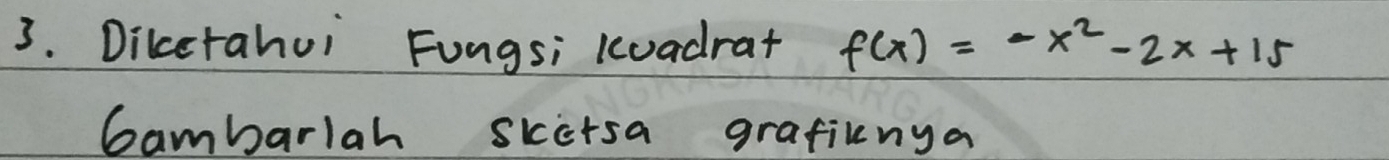 3. Diketahui Fungsi kuadrat f(x) = -x² - 2x + 15
Gambarlah sketsa grafiknya